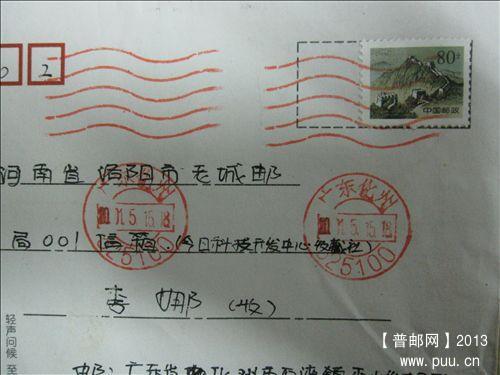 0 2
80分
中国邮政
河南省濮阳市老城邮
局001信箱(今日科技开发中心收藏社)
广东化州
2011.5.15.18
525100
广东化州
2011.5.15.18
525100
李娜(收)
轻声问候 至
邮:广东省
【普邮网】2013
www.puu.cn